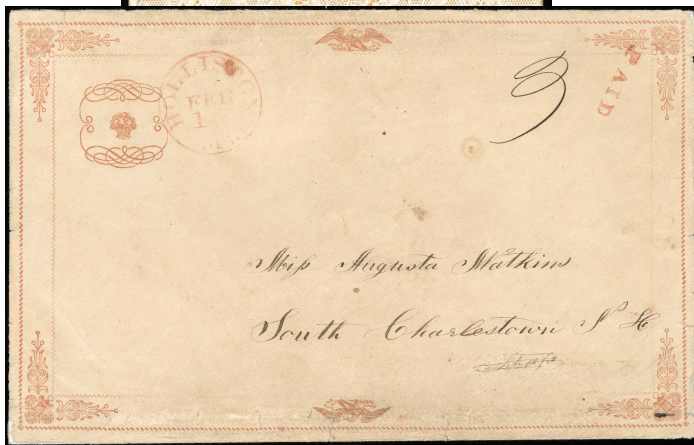 HOLLISTON
FEB
1
3
PAID
Miss Augusta Watkins
South Charlestown N H